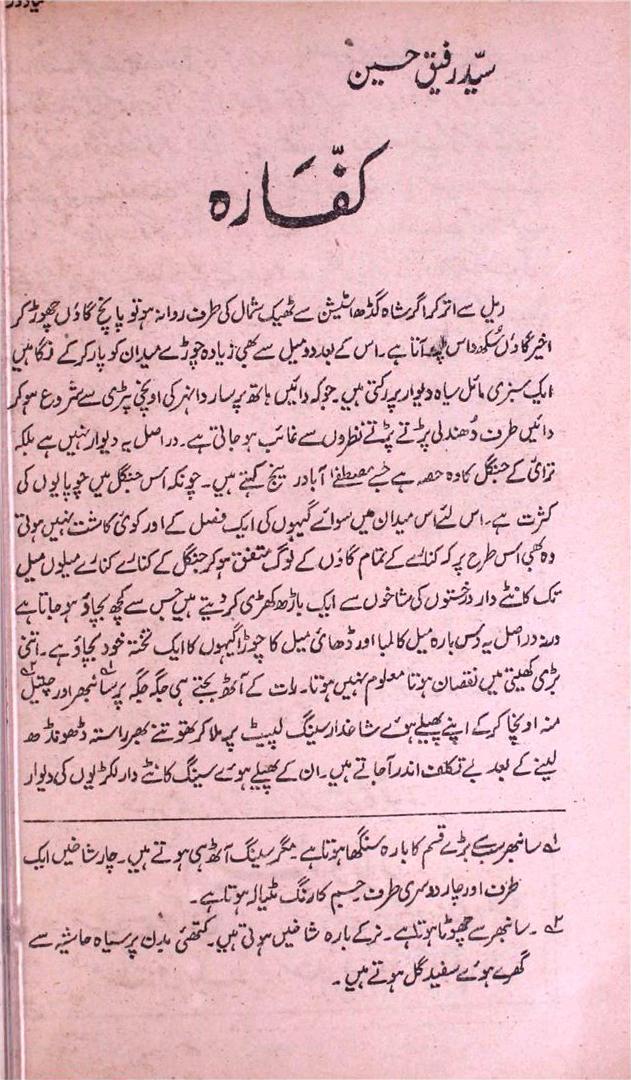 سیّد رفیق حسین
کفّارہ
ریل سے اتر کر اگر شاہ گڈھ اسٹیشن سے ٹھیک شمال کی طرف روانہ ہو تو پانچ گاؤں چھوڑ کر
اخیر گاؤں سُکھ داس پور آتا ہے۔ اس کے بعد دو میل سے بھی زیادہ چوڑے میدان کو پار کر کے نگاہیں
ایک سبزی مائل سیاہ دیوار پر رکتی ہیں۔ جو کہ دائیں ہاتھ پر ساردا نہر کی اونچی پٹری سے شروع ہو کر
دائیں طرف دُھندلی پڑتے پڑتے نظروں سے غائب ہو جاتی ہے۔ دراصل یہ دیوار نہیں ہے بلکہ
ترائی کے جنگل کا وہ حصہ ہے جسے مصطفےٰ آباد رینج کہتے ہیں۔ چونکہ اس جنگل میں چوپایوں کی
کثرت ہے۔ اس لئے اس میدان میں سوائے گیہوں کی ایک فصل کے اور کوئی کاشت نہیں ہوتی
وہ بھی اس طرح پر کہ کنارے کے تمام گاؤں کے لوگ متفق ہو کر جنگل کے کنارے کنارے میلوں میل
تک کانٹے دار درختوں کی شاخوں سے ایک باڑھ کھڑی کر دیتے ہیں جس سے کچھ بچاؤ ہو جاتا ہے
ورنہ دراصل یہ دس بارہ میل کا لمبا اور ڈھائی میل کا چوڑا گیہوں کا ایک تختہ خود بچاؤ ہے۔ اتنی
بڑی کھیتی میں نقصان ہوتا معلوم نہیں ہوتا۔ رات کے آٹھ بجتے ہی جگہ جگہ پر سانبھر۱؎ اور چیتل۲؎
منہ اونچا کر کے اپنے پھیلے ہوئے شاخدار سینگ لپیٹ پر ملا کر تھوتنے بھر راستہ ڈھونڈھ
لینے کے بعد بے تکلف اندر آ جاتے ہیں۔ ان کے پھیلے ہوئے سینگ کانٹے دار لکڑیوں کی دیوار
۱؎ سانبھر سب بڑے قسم کا بارہ سنگھا ہوتا ہے مگر سینگ آٹھ ہی ہوتے ہیں۔ چار شاخیں ایک
طرف اور چار دوسری طرف جسم کا رنگ مٹیالہ ہوتا ہے۔
۲؎ ۔ سانبھر سے چھوٹا ہوتا ہے۔ نر کے بارہ شاخیں ہوتی ہیں۔ کتھئی بدن پر سیاہ حاشیہ سے
گھرے ہوئے سفید گل ہوتے ہیں۔